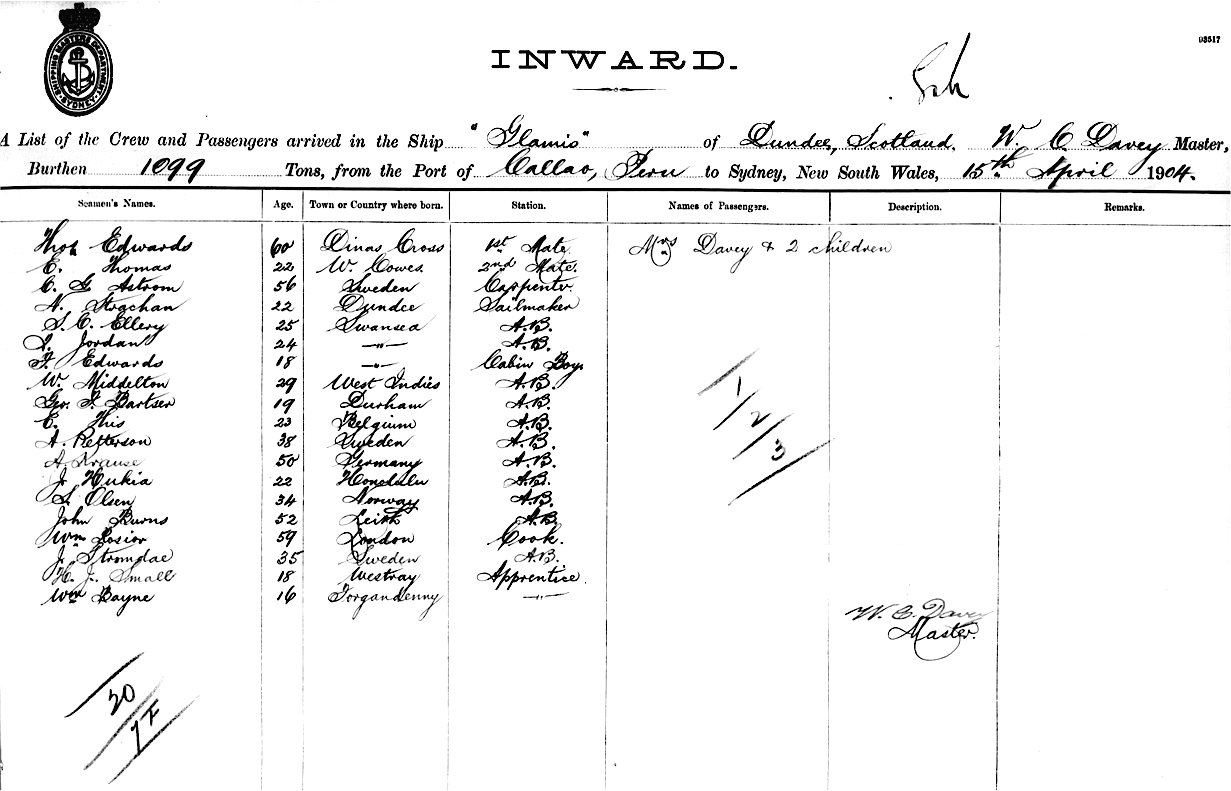 SHIPPING MASTERS DEPARTMENT SYDNEY
03517
INWARD.
A List of the Crew and Passengers arrived in the Ship "Glamis" of Dundee, Scotland. W. C Davey Master,
Burthen 1099 Tons, from the Port of Callao, Peru to Sydney, New South Wales, 15th April 1904.
Seamen's Names. Age. Town or Country where born. Station. Names of Passengers. Description. Remarks.
Thos Edwards 60 Dinas Cross 1st Mate Mrs Davey & 2 children
E. Thomas 22 W. Cowes 2nd Mate.
C. G Astrom 56 Sweden Carpenter
N. Strachan 22 Dundee Sailmaker
S. C. Ellery 25 Swansea A.B.
Jordan 24 —"— A.B.
Edwards 18 —"— Cabin Boy
W. Middelton 29 West Indies A.B.
Geo. Bartser 19 Durham A.B.
E. This 23 Belgium A.B.
A. Petterson 38 Sweden A.B.
A. Krause 50 Germany A.B.
J. Hukia 22 Honolulu A.B.
S. Olsen 34 Norway A.B.
John Burns 52 Leith A.B.
Wm Losior 59 London Cook.
J. Stromdae 35 Sweden A.B.
H. J. Small 18 Westray Apprentice
Wm Bayne 16 Forgandenny —"—
1/2/3
W. C. Davey
Master.
20
1 F